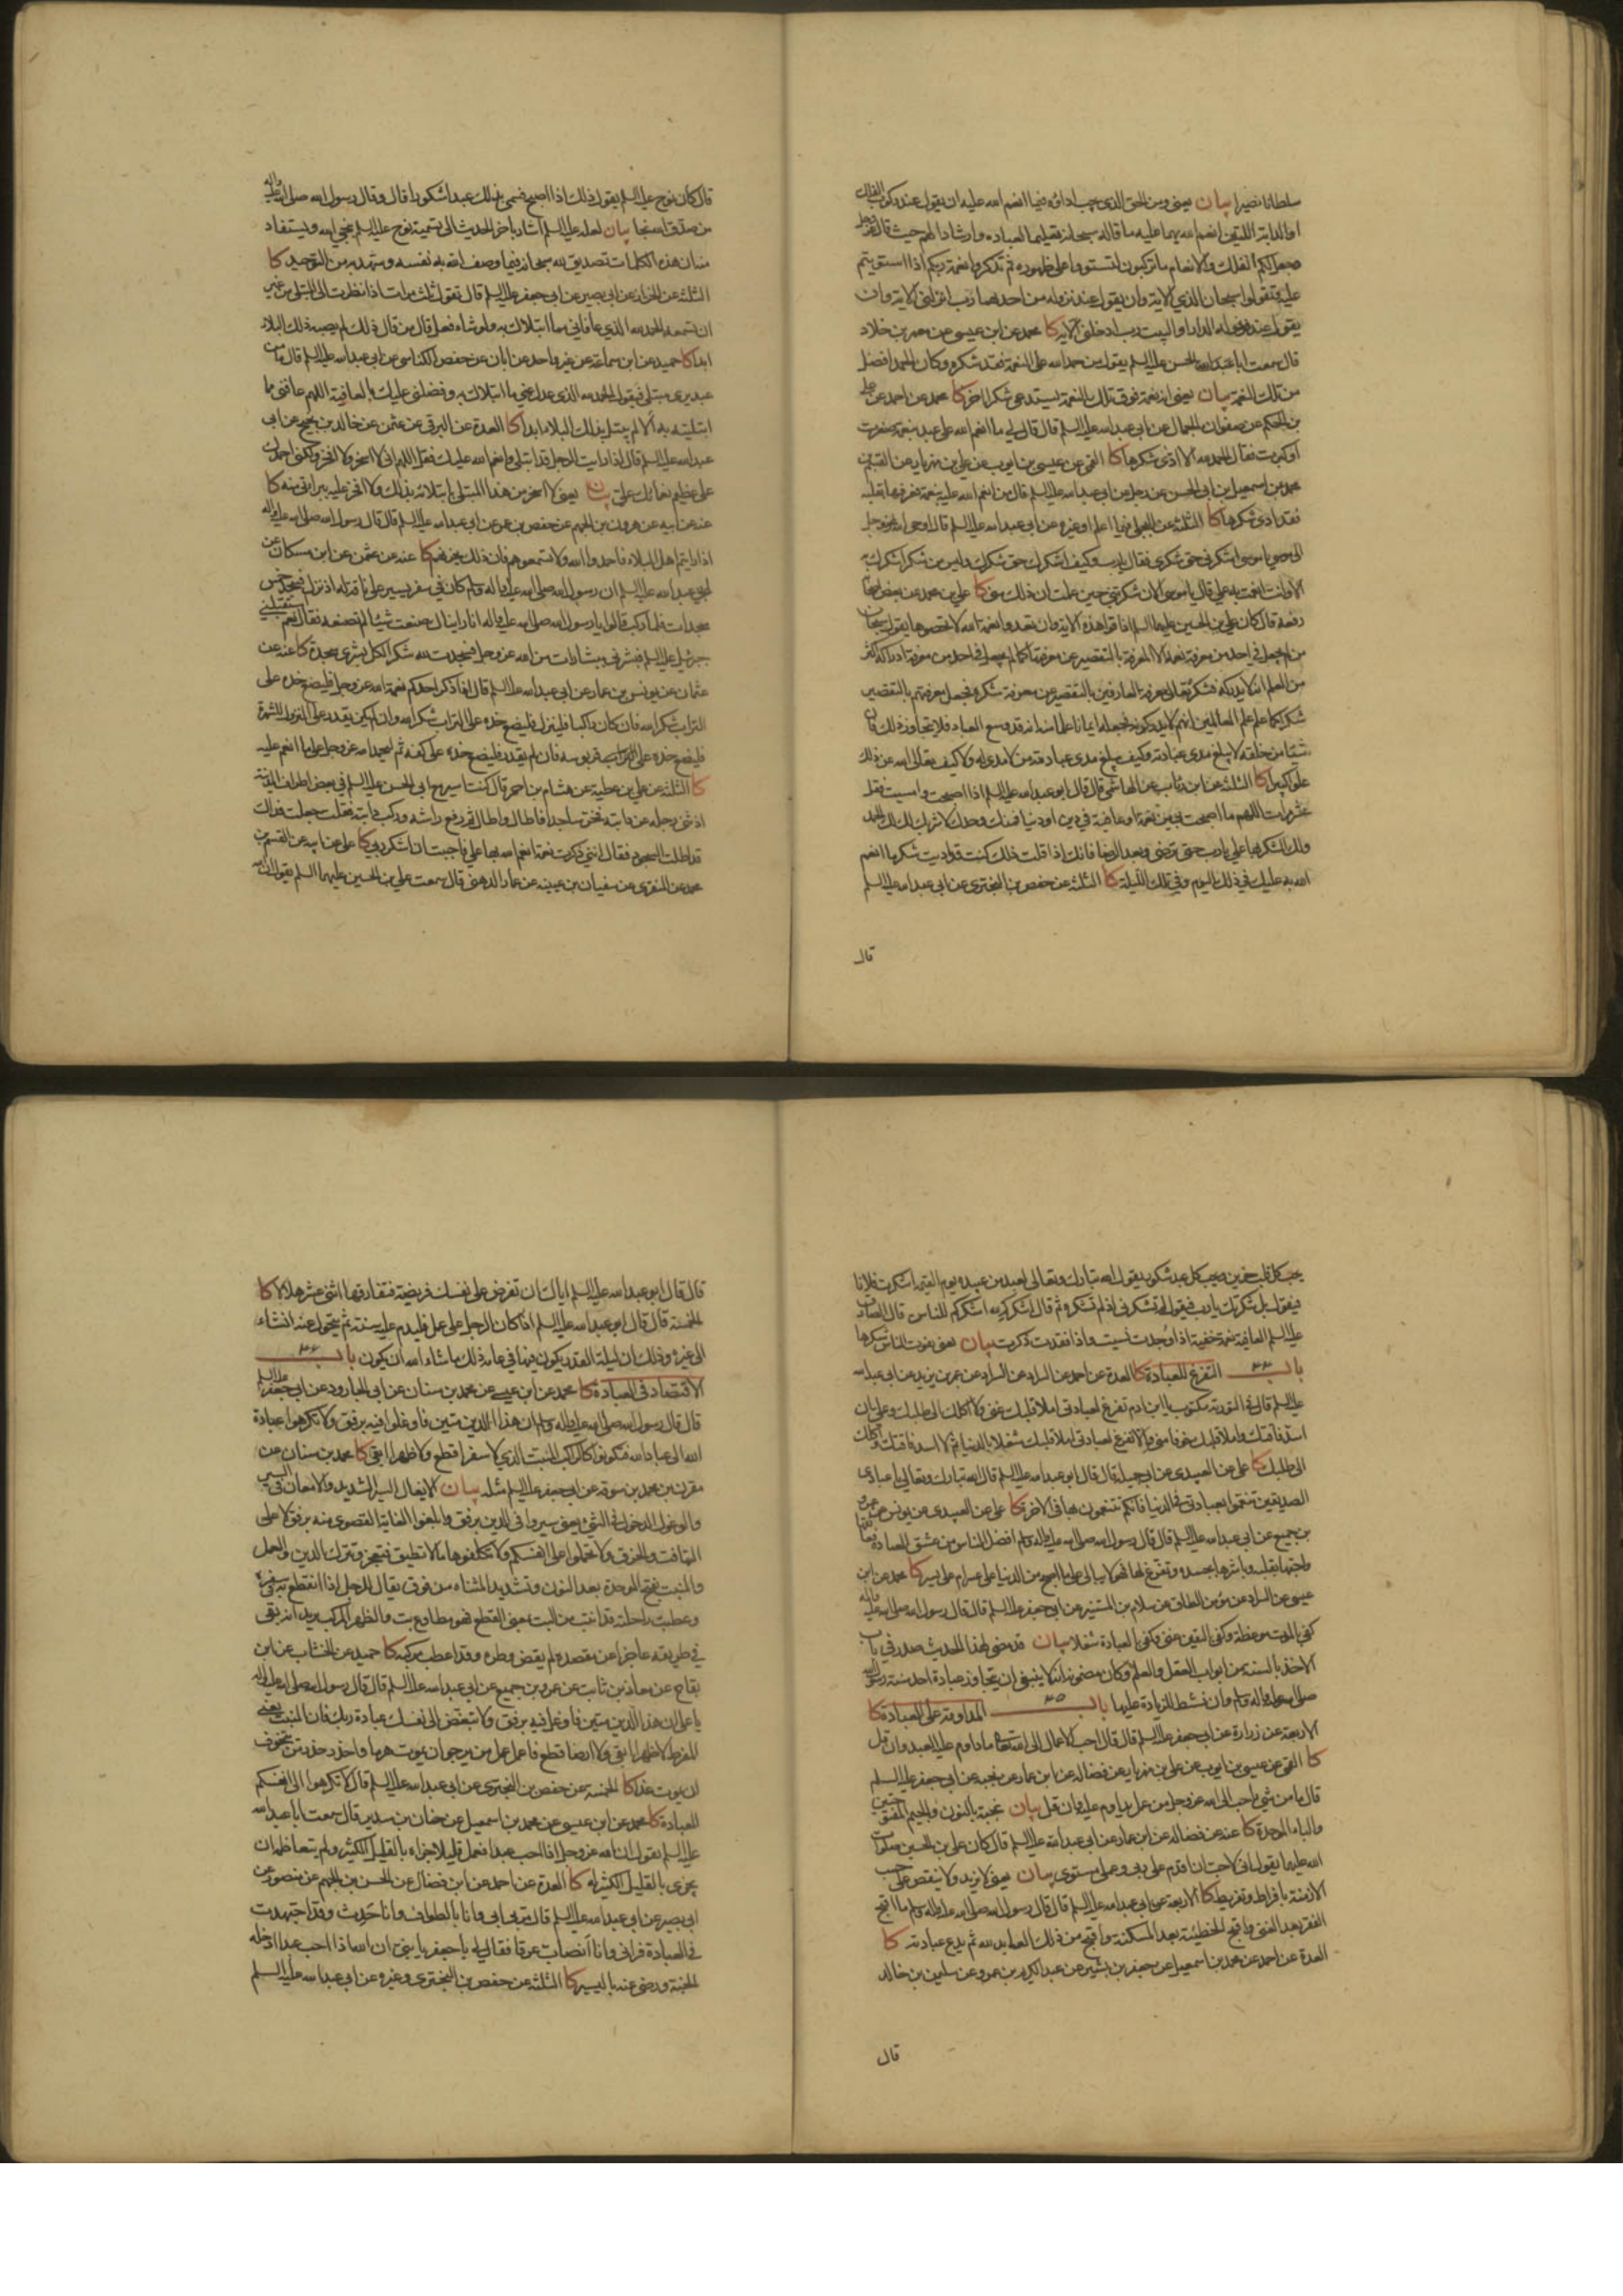 سلطانا نصيرا بيان يعنى ومن الحق الذى يجب اداؤه فيما انعم الله عليه ان يقول عند ركوب الفلك
او الدابة اللتين انعم الله بهما عليه ما قاله سبحانه تعليما لعباده وارشادا لهم حيث قال عز وجل
وجعل لكم الفلك والانعام ما تركبون لتستووا على ظهوره ثم تذكروا نعمة ربكم اذا استويتم
عليه وتقولوا سبحان الذي الاية وان يقول عند نزوله من احدهما رب انزلنى الاية وان
يقول عند دخوله الدار او البيت رب ادخلنى الاية كا محمد عن ابن عيسى عن معمر بن خلاد
قال سمعت ابا الحسن عليه السلم يقول من حمد الله على النعمة فقد شكره وكان الحمد افضل
من تلك النعمة بيان يعنى انه نعمة فوق تلك النعمة يستدعى شكرا اخر كا محمد عن احمد عن على
بن الحكم عن صفوان الجمال عن ابى عبد الله عليه السلم قال قال لي ما انعم الله على عبد بنعمة صغرت
او كبرت فقال الحمد لله الا ادى شكرها كا القمى عن عيسى بن ايوب عن على بن مهزيار عن القسم بن
محمد عن اسمعيل بن ابى الحسن عن رجل عن ابى عبد الله عليه السلم قال من انعم الله عليه بنعمة فعرفها بقلبه
فقد ادى شكرها كا الثلثة عن البجلي فيما اعلم او غيره عن ابى عبد الله عليه السلم قال اوحى الله عز وجل
الى موسى يا موسى اشكرنى حق شكرى فقال يا رب وكيف اشكرك حق شكرك وليس من شكر اشكرك به
الا وانت انعمت به علي قال يا موسى الان شكرتني حين علمت ان ذلك منى كا علي بن محمد عن بعض اصحابنا
رفعه قال كان علي بن الحسين عليهما السلم اذا قرا هذه الاية وان تعدوا نعمة الله لا تحصوها يقول سبحان
من لم يجعل في احد من معرفة نعمه الا المعرفة بالتقصير عن معرفتها كما لم يجعل في احد من معرفة ادراكه اكثر
من العلم انه لا يدركه فشكر تعالى معرفة العارفين بالتقصير عن معرفة شكره فجعل معرفتهم بالتقصير
شكرا كما علم علم العالمين انهم لا يدركونه فجعله ايمانا علما منه انه قد وسع العباد فلا يتجاوز ذلك فان
شيئا من خلقه لا يبلغ مدى عبادته وكيف يبلغ مدى عبادته من لا مدى له ولا كيف تعالى الله عن ذلك
علوا كبيرا كا الثلثة عن ابن رئاب عن الهاشمي قال قال ابو عبد الله عليه السلم اذا اصبحت وامسيت فقل
عشر مرات اللهم ما اصبحت بي من نعمة او عافية في دين او دنيا فمنك وحدك لا شريك لك لك الحمد
ولك الشكر بها علي يا رب حتى ترضى وبعد الرضا فانك اذا قلت ذلك كنت قد اديت شكر ما انعم
الله به عليك في ذلك اليوم وفي تلك الليلة كا الثلثة عن حفص بن البخترى عن ابى عبد الله عليه السلم
قال
قال كان نوح عليه السلم يقول ذلك اذا اصبح فسمى بذلك عبدا شكورا قال وقال رسول الله صلى الله عليه واله
من صدق الله نجا بيان لعله عليه السلم اشار باخر الحديث الى تسمية نوح عليه السلم نجي الله ويستفاد
منه ان هذه الكلمات تصديق لله سبحانه فيما وصف الله به نفسه وشهد به من التوحيد كا
الثلثة عن الخزاز عن ابى بصير عن ابى جعفر عليه السلم قال تقول ثلث مرات اذا نظرت الى المبتلى من غير
ان تسمعه الحمد لله الذي عافانى مما ابتلاك به ولو شاء فعل قال من قال ذلك لم يصبه ذلك البلاء
ابدا كا حميد عن ابن سماعة عن غير واحد عن ابان عن حفص الكناسى عن ابى عبد الله عليه السلم قال ما من
عبد يرى مبتلى فيقول الحمد لله الذى عدل عني ما ابتلاك به وفضلنى عليك بالعافية اللهم عافنى مما
ابتليته به الا لم يبتل بذلك البلاء ابدا كا العدة عن البرقى عن عثمن عن خالد بن نجيح عن ابى
عبد الله عليه السلم قال اذا رايت الرجل قد ابتلى وانعم الله عليك فقل اللهم انى لا اسخر ولا افخر ولكنى احمدك
على عظيم نعمائك علي بيان يعنى لا اسخر من هذا المبتلى بابتلائه بذلك ولا افخر عليه ببراءتى منه كا
عنه عن ابيه عن هرون بن الجهم عن حفص بن عمر عن ابى عبد الله عليه السلم قال قال رسول الله صلى الله عليه واله
اذا رايتم اهل البلاء فاحمدوا الله ولا تسمعوهم فان ذلك يحزنهم كا عنه عن عثمن عن ابن مسكان عن
ابى عبد الله عليه السلم ان رسول الله صلى الله عليه واله وسلم كان في سفر يسير على ناقة له اذ نزل فسجد خمس
سجدات فلما ركب قالوا يا رسول الله صلى الله عليه واله انا رايناك صنعت شيئا لم تصنعه فقال نعم استقبلني
جبرئيل عليه السلم فبشرنى ببشارات من الله عز وجل فسجدت لله شكرا لكل بشرى سجدة كا عنه عن
عثمان عن يونس بن عمار عن ابى عبد الله عليه السلم قال اذا ذكر احدكم نعمة الله عز وجل فليضع خده على
التراب شكرا لله فان كان راكبا فلينزل فليضع خده على التراب شكرا لله وان لم يكن يقدر على النزول للشهرة
فليضع خده على قربوسه فان لم يقدر فليضع خده على كفه ثم ليحمد الله عز وجل على ما انعم عليه
كا الثلثة عن علي بن عطية عن هشام بن احمر قال كنت اسير مع ابى الحسن عليه السلم في بعض اطراف المدينة
اذ ثنى رجله عن دابته فخر ساجدا فاطال واطال ثم رفع راسه وركب دابته فقلت جعلت فداك
قد اطلت السجود فقال اننى ذكرت نعمة انعم الله بها علي فاحببت ان اشكر ربي كا علي عن ابيه عن القسم بن
محمد عن المنقرى عن سفيان بن عيينه عن عمار الدهنى قال سمعت علي بن الحسين عليهما السلم يقول ان الله
يحب كل قلب حزين ويحب كل عبد شكور يقول الله تبارك وتعالى لعبد من عبيده يوم القيمة اشكرت فلانا
فيقول بل شكرتك يا رب فيقول لم تشكرنى اذ لم تشكره ثم قال اشكركم لله اشكركم للناس قال الصادق
عليه السلم العافية نعمة خفية اذا وجدت نسيت واذا فقدت ذكرت بيان يعنى يفوت الناس شكرها
باب ٣٤ التفرغ للعبادة كا العدة عن احمد عن السراد عن عمر بن يزيد عن ابى عبد الله
عليه السلم قال في التورية مكتوب يا ابن ادم تفرغ لعبادتى املا قلبك غنى ولا اكلك الى طلبك وعلي ان
اسد فاقتك واملا قلبك خوفا منى والا تفرغ لعبادتى املا قلبك شغلا بالدنيا ثم لا اسد فاقتك واكلك
الى طلبك كا على عن العبيدى عن ابى جميلة قال قال ابو عبد الله عليه السلم قال الله تبارك وتعالى يا عبادى
الصديقين تنعموا بعبادتى فى الدنيا فانكم تتنعمون بها فى الاخرة كا علي عن العبيدى عن يونس عن عمرو
بن جميع عن ابى عبد الله عليه السلم قال قال رسول الله صلى الله عليه واله وسلم افضل الناس من عشق العبادة فعانقها
واحبها بقلبه وباشرها بجسده وتفرغ لها فهو لا يبالى على ما اصبح من الدنيا على عسر ام على يسر كا محمد عن ابن
عيسى عن السراد عن مؤمن الطاق عن سلام بن المستنير عن ابى جعفر عليه السلم قال قال رسول الله صلى الله عليه واله
كفى بالموت موعظة وكفى باليقين غنى وكفى بالعبادة شغلا بيان قد مضى لهذا الحديث صدر في باب
الاخذ بالسنة من ابواب العقل والعلم وكان مضمونه انه لا ينبغى ان يتجاوز عبادة احد سنة رسول الله
صلى الله عليه واله وسلم وان نشط للزيادة عليها باب ٣٥ المداومة على العبادة كا
الاربعة عن زرارة عن ابى جعفر عليه السلم قال قال احب الاعمال الى الله ما داوم عليه العبد وان قل
كا القمى عن عيسى بن ايوب عن على بن مهزيار عن فضاله عن ابن عمار عن نجبه عن ابى جعفر عليه السلم
قال ما من شئ احب الى الله عز وجل من عمل يداوم عليه وان قل بيان نجبة بالنون والجيم المفتوحتين
والباء الموحدة كا عنه عن فضاله عن ابن عمار عن ابى عبد الله عليه السلم قال كان على بن الحسين صلوات
الله عليهما يقول انى لاحب ان اقدم على ربى وعملى مستوى بيان يعنى لا يزيد ولا ينقص على حسب
الازمنة بافراط وتفريط كا الاربعة عن ابى عبد الله عليه السلم قال قال رسول الله صلى الله عليه واله وسلم ما اقبح
الفقر بعد الغنى واقبح الخطيئة بعد المسكنة واقبح من ذلك العابد لله ثم يدع عبادته كا
العدة عن احمد عن محمد بن اسمعيل عن جعفر بن بشير عن عبد الكريم بن عمرو عن سليمن بن خالد
قال
قال قال ابو عبد الله عليه السلم اياك ان تفرض على نفسك فريضة فتفارقها اثنى عشر هلالا كا
الخمسة قال قال ابو عبد الله عليه السلم اذا كان الرجل على عمل فليدم عليه سنة ثم يتحول عنه ان شاء
الى غيره وذلك ان ليلة القدر يكون فيها في عامه ذلك ما شاء الله ان يكون باب ٣٦
الاقتصاد في العبادة كا محمد عن ابن عيسى عن محمد بن سنان عن ابى الجارود عن ابى جعفر عليه السلم
قال قال رسول الله صلى الله عليه واله وسلم ان هذا الدين متين فاوغلوا فيه برفق ولا تكرهوا عبادة
الله الى عباد الله فتكونوا كالراكب المنبت الذي لا سفرا قطع ولا ظهرا ابقى كا محمد بن سنان عن
مقرن عن محمد بن سوقه عن ابى جعفر عليه السلم مثله بيان الايغال السير الشديد والامعان في السير
والوغول الدخول في الشئ يعنى سيروا في الدين برفق وابلغوا الغاية القصوى منه برفق لا على
التهافت والخرق ولا تحملوا على انفسكم ولا تكلفوها ما لا تطيق فتعجز وتترك الدين والعمل
والمنبت بفتح الموحدة بعد النون وتشديد المثناه من فوق يقال للرجل اذا انقطع به في سفره
وعطبت راحلته قد انبت من البت بمعنى القطع فهو مطاوع بت والظهر المركب يريد انه بقى
في طريقه عاجزا عن مقصده لم يقض وطره وقد اعطب مركبه كا حميد عن الخشاب عن ابن
بقاح عن معاذ بن ثابت عن عمرو بن جميع عن ابى عبد الله عليه السلم قال قال رسول الله صلى الله عليه واله
يا علي ان هذا الدين متين فاوغل فيه برفق ولا تبغض الى نفسك عبادة ربك فان المنبت يعنى
المفرط لا ظهرا ابقى ولا ارضا قطع فاعمل عمل من يرجو ان يموت هرما واحذر حذر من يتخوف
ان يموت غدا كا الخمسة عن حفص بن البخترى عن ابى عبد الله عليه السلم قال لا تكرهوا الى انفسكم
العبادة كا محمد عن ابن عيسى عن محمد بن اسمعيل عن حنان بن سدير قال سمعت ابا عبد الله
عليه السلم يقول ان الله عز وجل اذا احب عبدا فعمل قليلا جزاه بالقليل الكثير ولم يتعاظمه ان
يجزى بالقليل الكثير له كا العدة عن احمد عن ابن فضال عن الحسن بن الجهم عن منصور عن
ابى بصير عن ابى عبد الله عليه السلم قال مر بى ابى وانا بالطواف وانا حدث وقد اجتهدت
في العبادة فرانى وانا اتصاب عرقا فقال لي يا جعفر يا بني ان الله اذا احب عبدا ادخله
الجنة ورضى عنه باليسير كا الثلثة عن حفص بن البخترى وغيره عن ابى عبد الله عليه السلم